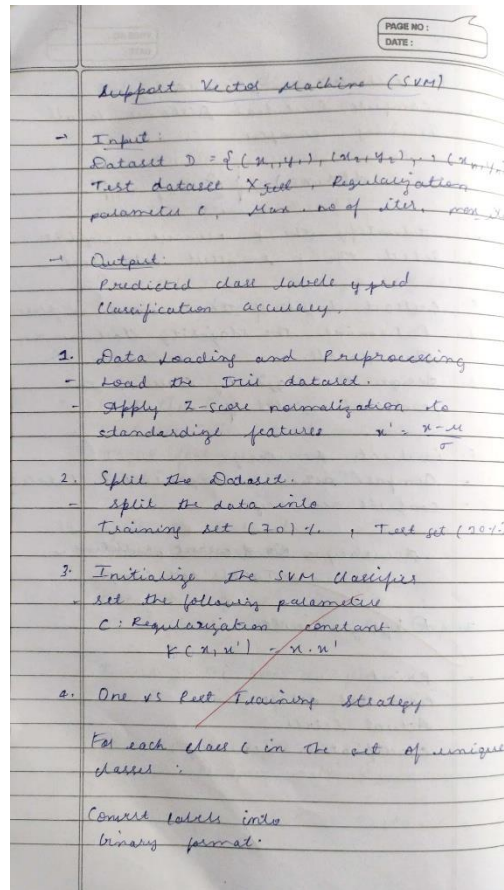 PAGE NO :
DATE :
Support Vector Machine (SVM)
→ Input :
Dataset D = {(x₁,y₁), (x₂,y₂), ., (xₙ,yₙ
Test dataset X test, Regularization
parameter C, Max. no of iter, max
→ Output:
Predicted class labels y pred
Classification accuracy.
1. Data Loading and Preprocessing
- Load the Iris dataset.
- Apply Z-score normalization to
standardize features x' = x-μ/σ
2. Split the Dataset.
- Split the data into
Training set (70)%. , Test set (30%
3. Initialize the SVM classifier
- set the following parameters
C : Regularization constant
K(x,x') = x.x'
4. One vs Rest Training strategy
For each class C in the set of unique
classes :
Convert labels into
binary format.